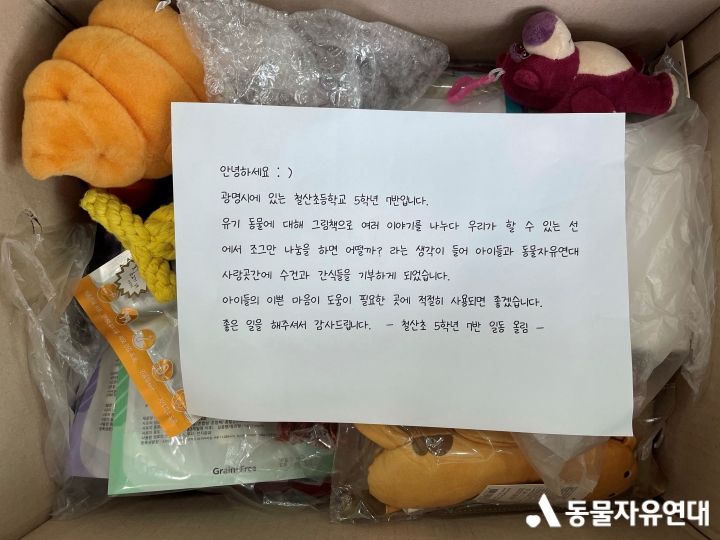 안녕하세요 : )
광명시에 있는 철산초등학교 5학년 7반입니다.
유기 동물에 대해 그림책으로 여러 이야기를 나누다 우리가 할 수 있는 선
에서 조그만 나눔을 하면 어떨까? 라는 생각이 들어 아이들과 동물자유연대
사랑곳간에 수건과 간식들을 기부하게 되었습니다.
아이들의 이쁜 마음이 도움이 필요한 곳에 적절히 사용되면 좋겠습니다.
좋은 일을 해주셔서 감사드립니다. - 철산초 5학년 7반 일동 올림 -
Grain-Free
동물자유연대